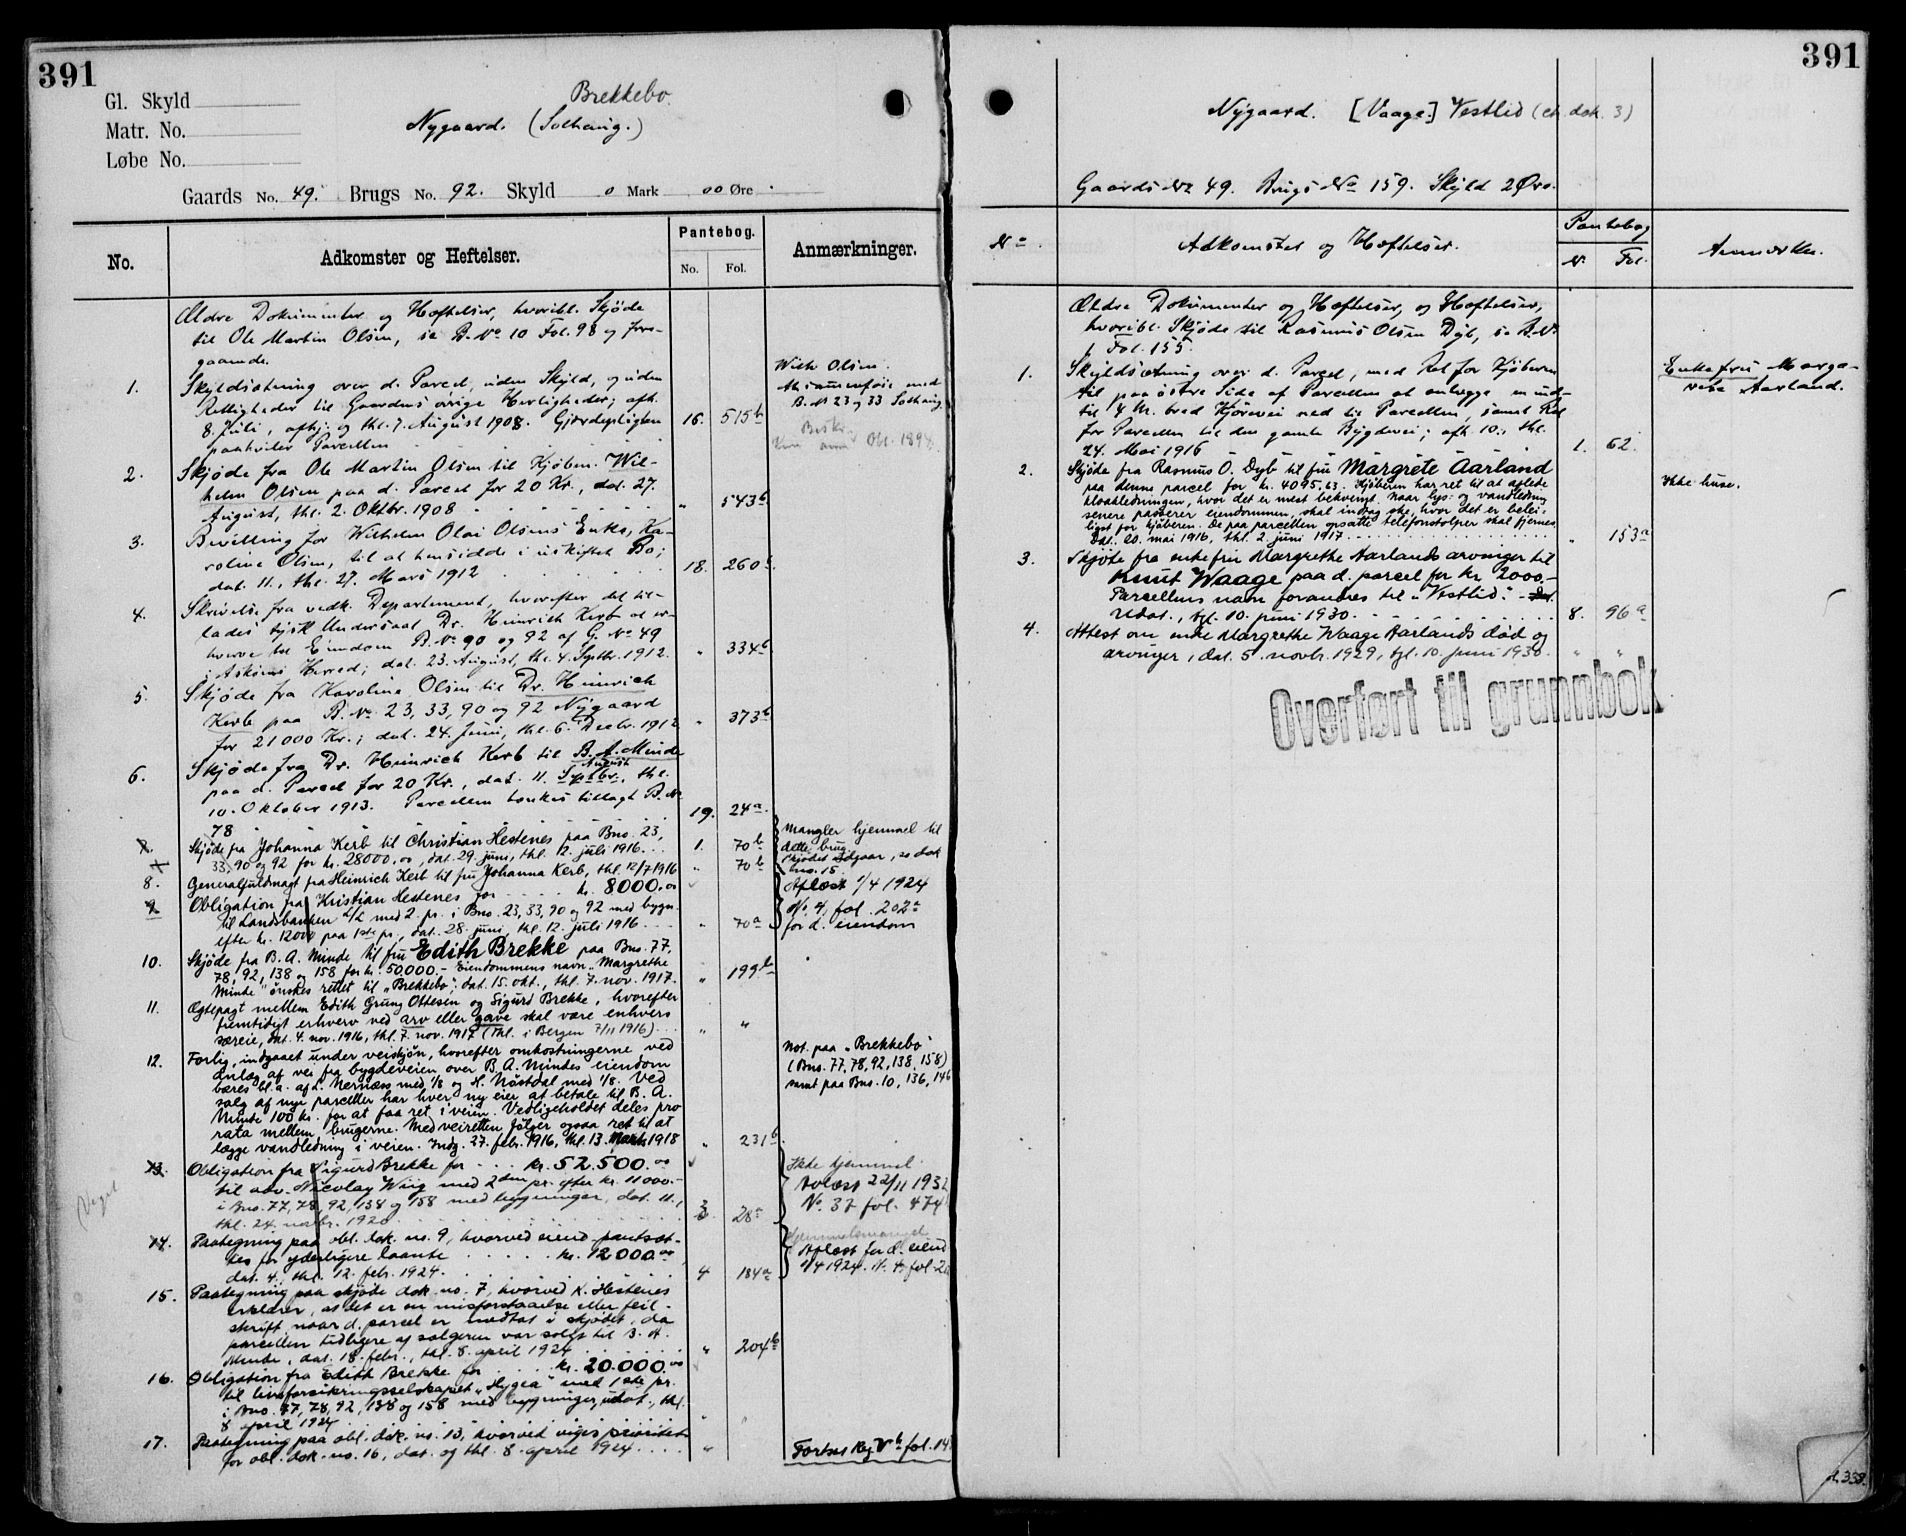 391
Gl. Skyld
Matr. No.
Løbe No.
Brekkebo
Nygaard. (Solhaug.)
Gaards No. 49. Brugs No. 92. Skyld 0 Mark 00 Øre
No.
Adkomster og Heftelser.
Pantebog.
No. Fol.
Anmærkninger.
Ældre Dokumenter og Hæftelser, hvoribl. Skjøde
til Ole Martin Olsen, se B. No 10 Fol. 98 og fore-
gaaende.
1. Skyldsætning over d. Parcel, uden Skyld, og uden
Rettigheder til Gaardens øvrige Herligheder; afh.
8. Juli, afhj. og thl. 7. August 1908. Gjerdepligten
paahviler Parcellen 16. 515b
Wilh Olsen.
At sammenføie med
B. No 23 og 33 Solhaug
Okt. 1898
2. Skjøde fra Ole Martin Olsen til Kjøbm. Wil-
helm Olsen paa d. Parcel for 20 Kr., dat. 27.
August, thl. 2. Oktbr. 1908 " 543b
3. Bevilling for Wilhelm Olai Olsens Enke, Ka-
roline Olsen, til at hensidde i uskiftet Bo;
dat. 11., thl. 27. Mars 1912 18. 260b
4. Skrivelse fra vedk. Departement, hvorefter det til-
lades tysk Undersaat Dr. Heinrich Kerb at er-
hverve til Eiendom B. No 90 og 92 af G. No 49
i Askøens Herred; dat. 23. August, thl. 4. Septbr. 1912. " 334b
5. Skjøde fra Karoline Olsen til Dr. Heinrich
Kerb paa B. No 23, 33, 90 og 92 Nygaard
for 21000 Kr.; dat. 24. Juni, thl. 6. Decbr. 1912 " 373b
6. Skjøde fra Dr. Heinrich Kerb til B. A. Minde
paa d. Parcel for 20 Kr., dat. 11. Septbr. August, thl.
10. Oktober 1913. Parcellen ønskes tillagt B. No
78 19. 24a
7. Skjøde fra Johanna Kerb til Christian Hestenes paa Bno. 23,
33, 90 og 92 for kr. 28000,00, dat. 29. juni, thl. 12. juli 1916. 1. 70b
Mangler hjemmel til
dette brug.
Skjødet udgaar, se dok
no. 15.
8. Generalfuldmagt fra Heinrich Kerb til fru Johanna Kerb, thl. 12/7 1916 " 70b
9. Obligation fra Kristian Hestenes for kr. 8000.00
til Landsbanken A/S med 2. pr. i Bno. 23, 33, 90 og 92 med bygn.
efter kr. 12000 paa 1ste pr., dat. 28. juni, thl. 12. juli 1916. " 70a
Aflæst 1/4 1924
No. 4, fol. 202a
for d. eiendom
10. Skjøde fra B. A. Minde til fru Edith Brekke paa Bno. 77,
78, 92, 138 og 158 for kr. 50,000.- Eiendommens navn „Margrethe
Minde" ønskes rettet til „Brekkebo"; dat. 15. okt., thl. 7. nov. 1917. " 199b
11. Ægtepagt mellem Edith Grung Ottesen og Sigurd Brekke, hvorefter
fremtidigt erhverv ved arv eller gave skal være enhvers
særeie, dat. 4. nov. 1916, thl. 7. nov. 1917 (Thl. i Bergen 7/11 1916) " "
12. Forlig, indgaaet under veiskjøn, hvorefter omkostningerne ved
anlæg af vei fra bygdeveien over B. A. Mindes eiendom
bæres bl.a. af L. Nernæss med 1/8 og H. Nøstdal med 1/8. Ved
salg af nye parceller har hver ny eier at betale til B. A.
Minde 100 kr. for at faa ret i veien. Vedligeholdet deles pro
rata mellem brugerne. Med veiretten følger ogsaa ret til at
lægge vandledning i veien. Indg. 27. febr. 1916, thl. 13. Marts 1918 " 231b
Not. paa „Brekkebo"
(Bno. 77, 78, 92, 138, 158)
samt paa Bno. 10, 136, 146
13. Obligation fra Sigurd Brekke for kr. 52.500.00
til adv. Nicolay Wiig med 2den pr. efter kr. 11000.-
i Bno. 77, 78, 92, 138 og 158 med bygninger, dat. 11.,
thl. 24. novbr. 1920 3. 28a
Ikke hjemmel.
Avlæst 22/11 1932
No. 37 fol. 474
14. Paategning paa obl. dok. no. 9, hvorved eiend. pantsæt-
tes for yderligere laante kr. 12000.00
dat. 4., thl. 12. febr. 1924. 4 184a
Hjemmelsmangel
Aflæst for d. eiend
1/4 1924. N. 4, fol. 2
15. Paategning paa skjøde dok. no. 7, hvorved K. Hestenes
erklærer, at det er en misforstaaelse eller feil-
skrift naar d. parcel er medtat i skjødet, da
parcellen tidligere af sælgeren var solgt til B. A.
Minde, dat. 18. febr., thl. 8. april 1924 " 204b
16. Obligation fra Edith Brekke for kr. 20.000.00
til livsforsikringsselskapet „Hygea" med 1ste pr.
i Bno. 77, 78, 92, 138 og 158 med bygninger, udat., thl.
8. april 1924 " "
17. Paategning paa obl. dok. no. 13, hvorved viges prioritet
for obl. dok. no. 16, dat. og thl. 8. april 1924 "
Fortsæ Reg. Vb fol. 14
391
Nygaard. [Vaage.] Vestlid (cfr. dok. 3)
Gaards No 49. Brugs No 159. Skyld 2 Øre.
No.
Adkomster og Hæftelser.
Pantebog
N. Fol.
Anmærkn.
Ældre Dokumenter og Hæftelser, og Hæftelser,
hvoribl. Skjøde til Rasmus Olsen Dyb, se B. No
1 Fol. 155.
1. Skyldsætning over d. Parcel, med Ret for Kjøberen
til paa østre Side af Parcellen at anlægge en ind-
til 4 M. bred Kjørevei ned til Parcellen, samt Ret
for Parcellen til den gamle Bygdevei; afh. 10., thl.
24. Mai 1916 1. 62.
Enkefru Marga-
rete Aarland.
2. Skjøde fra Rasmus O. Dyb til fru Margrete Aarland
paa denne parcel for kr. 4095,63. Kjøberen har ret til at aflede
kloakledningen, hvor det er mest bekvemt. Naar lys- og vandledning
senere passerer eiendommen, skal indtag ske, hvor det er belei-
ligst for kjøberen. De paa parcellen opsatte telefonstolper skal fjernes.
Dat. 20. mai 1916, thl. 2. juni 1917 " 153a
Ikke huse.
3. Skjøte fra enkefru Margrethe Aarlands arvinger til
Knut Waage paa d. parcel for kr 2000,-
Parcellens navn forandres til „Vestlid". - Dat.
Udat., tgl. 10. juni 1930. 8. 96a
4. Attest om enke Margrethe Waage Aarlands død og
arvinger, dat. 5. novbr. 1929, tgl. 10. juni 1930 " "
Overført til grunnbok